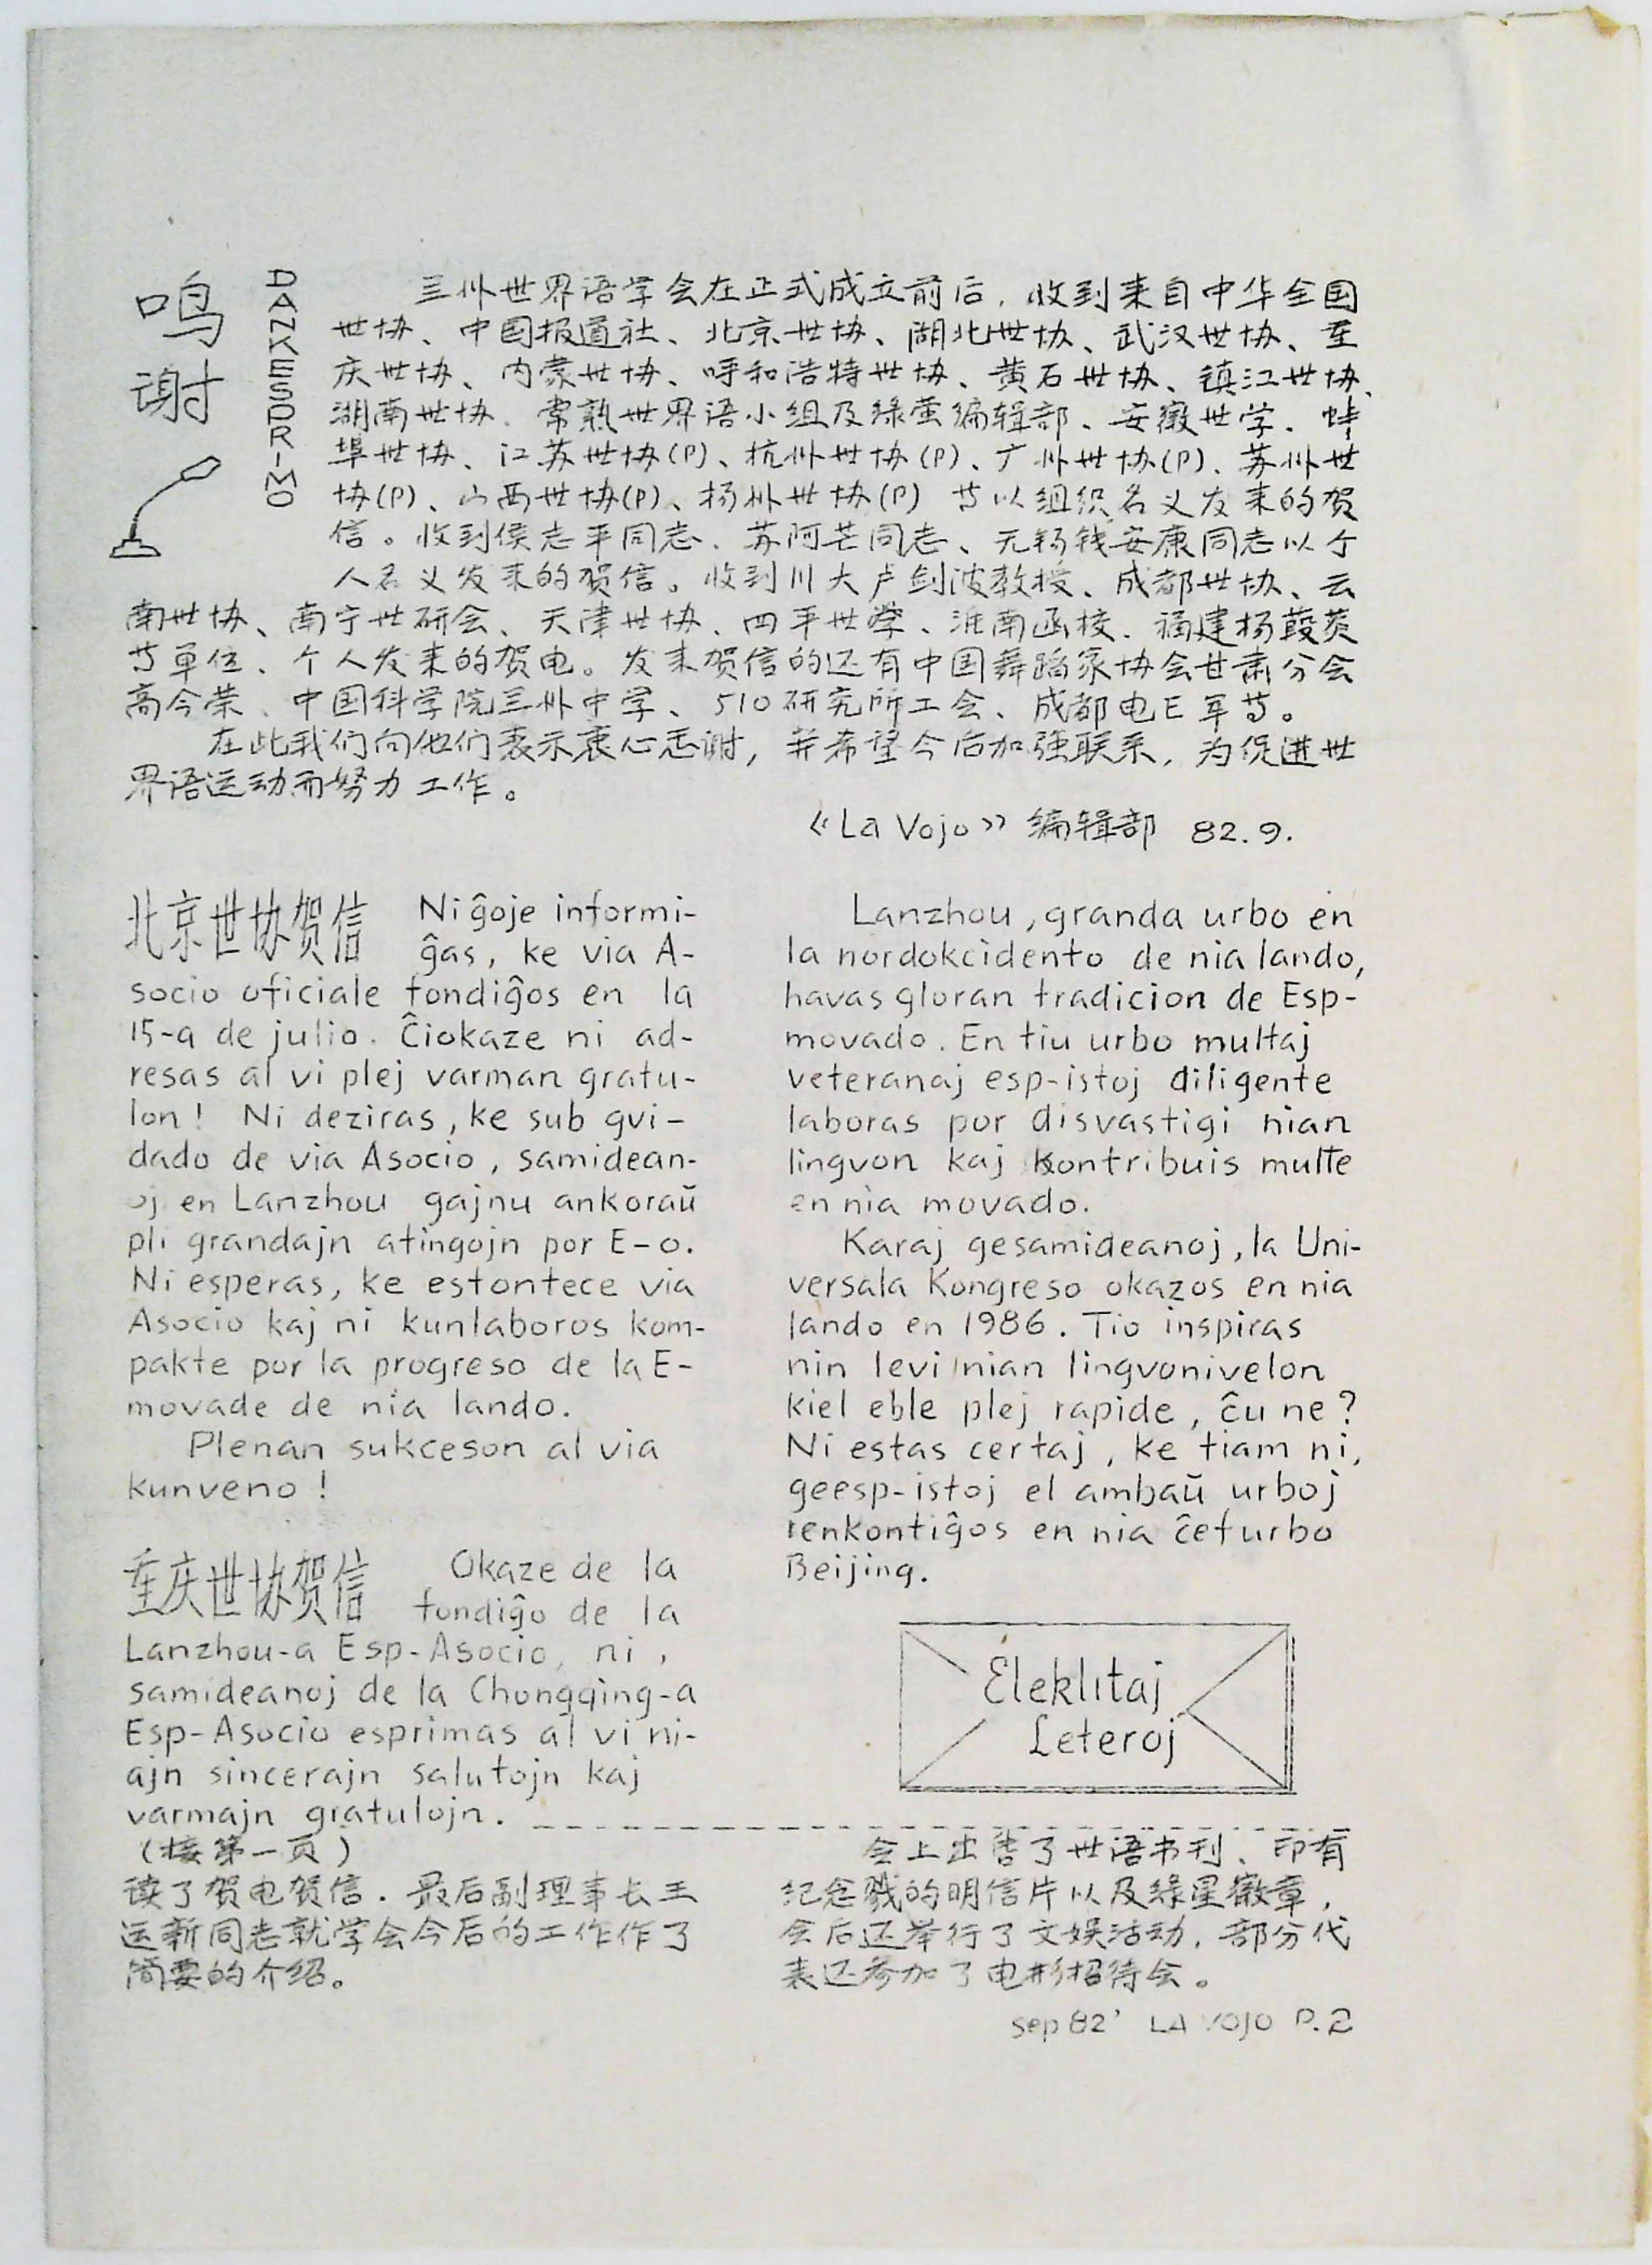 鸣谢
DANKESPRIMO
兰州世界语学会在正式成立前后，收到来自中华全国
世协、中国报道社、北京世协、湖北世协、武汉世协、重
庆世协、内蒙世协、呼和浩特世协、黄石世协、镇江世协、
湖南世协、常熟世界语小组及绿萤编辑部、安徽世学、蚌
埠世协、江苏世协(P)、杭州世协(P)、广州世协(P)、苏州世
协(P)、山西世协(P)、扬州世协(P) 等以组织名义发来的贺
信。收到侯志平同志、苏阿芒同志、无锡钱安康同志以个
人名义发来的贺信。收到川大卢剑波教授、成都世协、云
南世协、南宁世研会、天津世协、四平世学、淮南函校、福建杨
等单位、个人发来的贺电。发来贺信的还有中国舞蹈家协会甘肃分会
高今荣、中国科学院兰州中学、510研究所工会、成都电E军等。
在此我们向他们表示衷心感谢，并希望今后加强联系，为促进世
界语运动而努力工作。
《La Vojo》编辑部 82.9.
北京世协贺信
Ni ĝoje informi-
ĝas, ke via A-
socio oficiale fondiĝos en la
15-a de julio. Ĉiokaze ni ad-
resas al vi plej varman gratu-
lon! Ni deziras, ke sub gvi-
dado de via Asocio, samidean-
oj en Lanzhou gajnu ankoraŭ
pli grandajn atingojn por E-o.
Ni esperas, ke estontece via
Asocio kaj ni kunlaboros kom-
pakte por la progreso de la E-
movade de nia lando.
Plenan sukceson al via
kunveno!
重庆世协贺信
Okaze de la
fondiĝo de la
Lanzhou-a Esp-Asocio, ni,
samideanoj de la Chongqing-a
Esp-Asocio esprimas al vi ni-
ajn sincerajn salutojn kaj
varmajn gratulojn.
Lanzhou, granda urbo en
la nordokcidento de nia lando,
havas gloran tradicion de Esp-
movado. En tiu urbo multaj
veteranaj esp-istoj diligente
laboras por disvastigi nian
lingvon kaj kontribuis multe
en nia movado.
Karaj gesamideanoj, la Uni-
versala Kongreso okazos en nia
lando en 1986. Tio inspiras
nin levi nian lingvonivelon
kiel eble plej rapide, ĉu ne?
Ni estas certaj, ke tiam ni,
geesp-istoj el ambaŭ urboj
renkontiĝos en nia ĉefurbo
Beijing.
Eleklitaj
Leteroj
(接第一页)
读了贺电贺信．最后副理事长王
运新同志就学会今后的工作作了
简要的介绍。
会上出售了世语书刊、印有
纪念戳的明信片以及绿星徽章，
会后还举行了文娱活动，部分代
表还参加了电影招待会。
sep 82' LA VOJO P.2